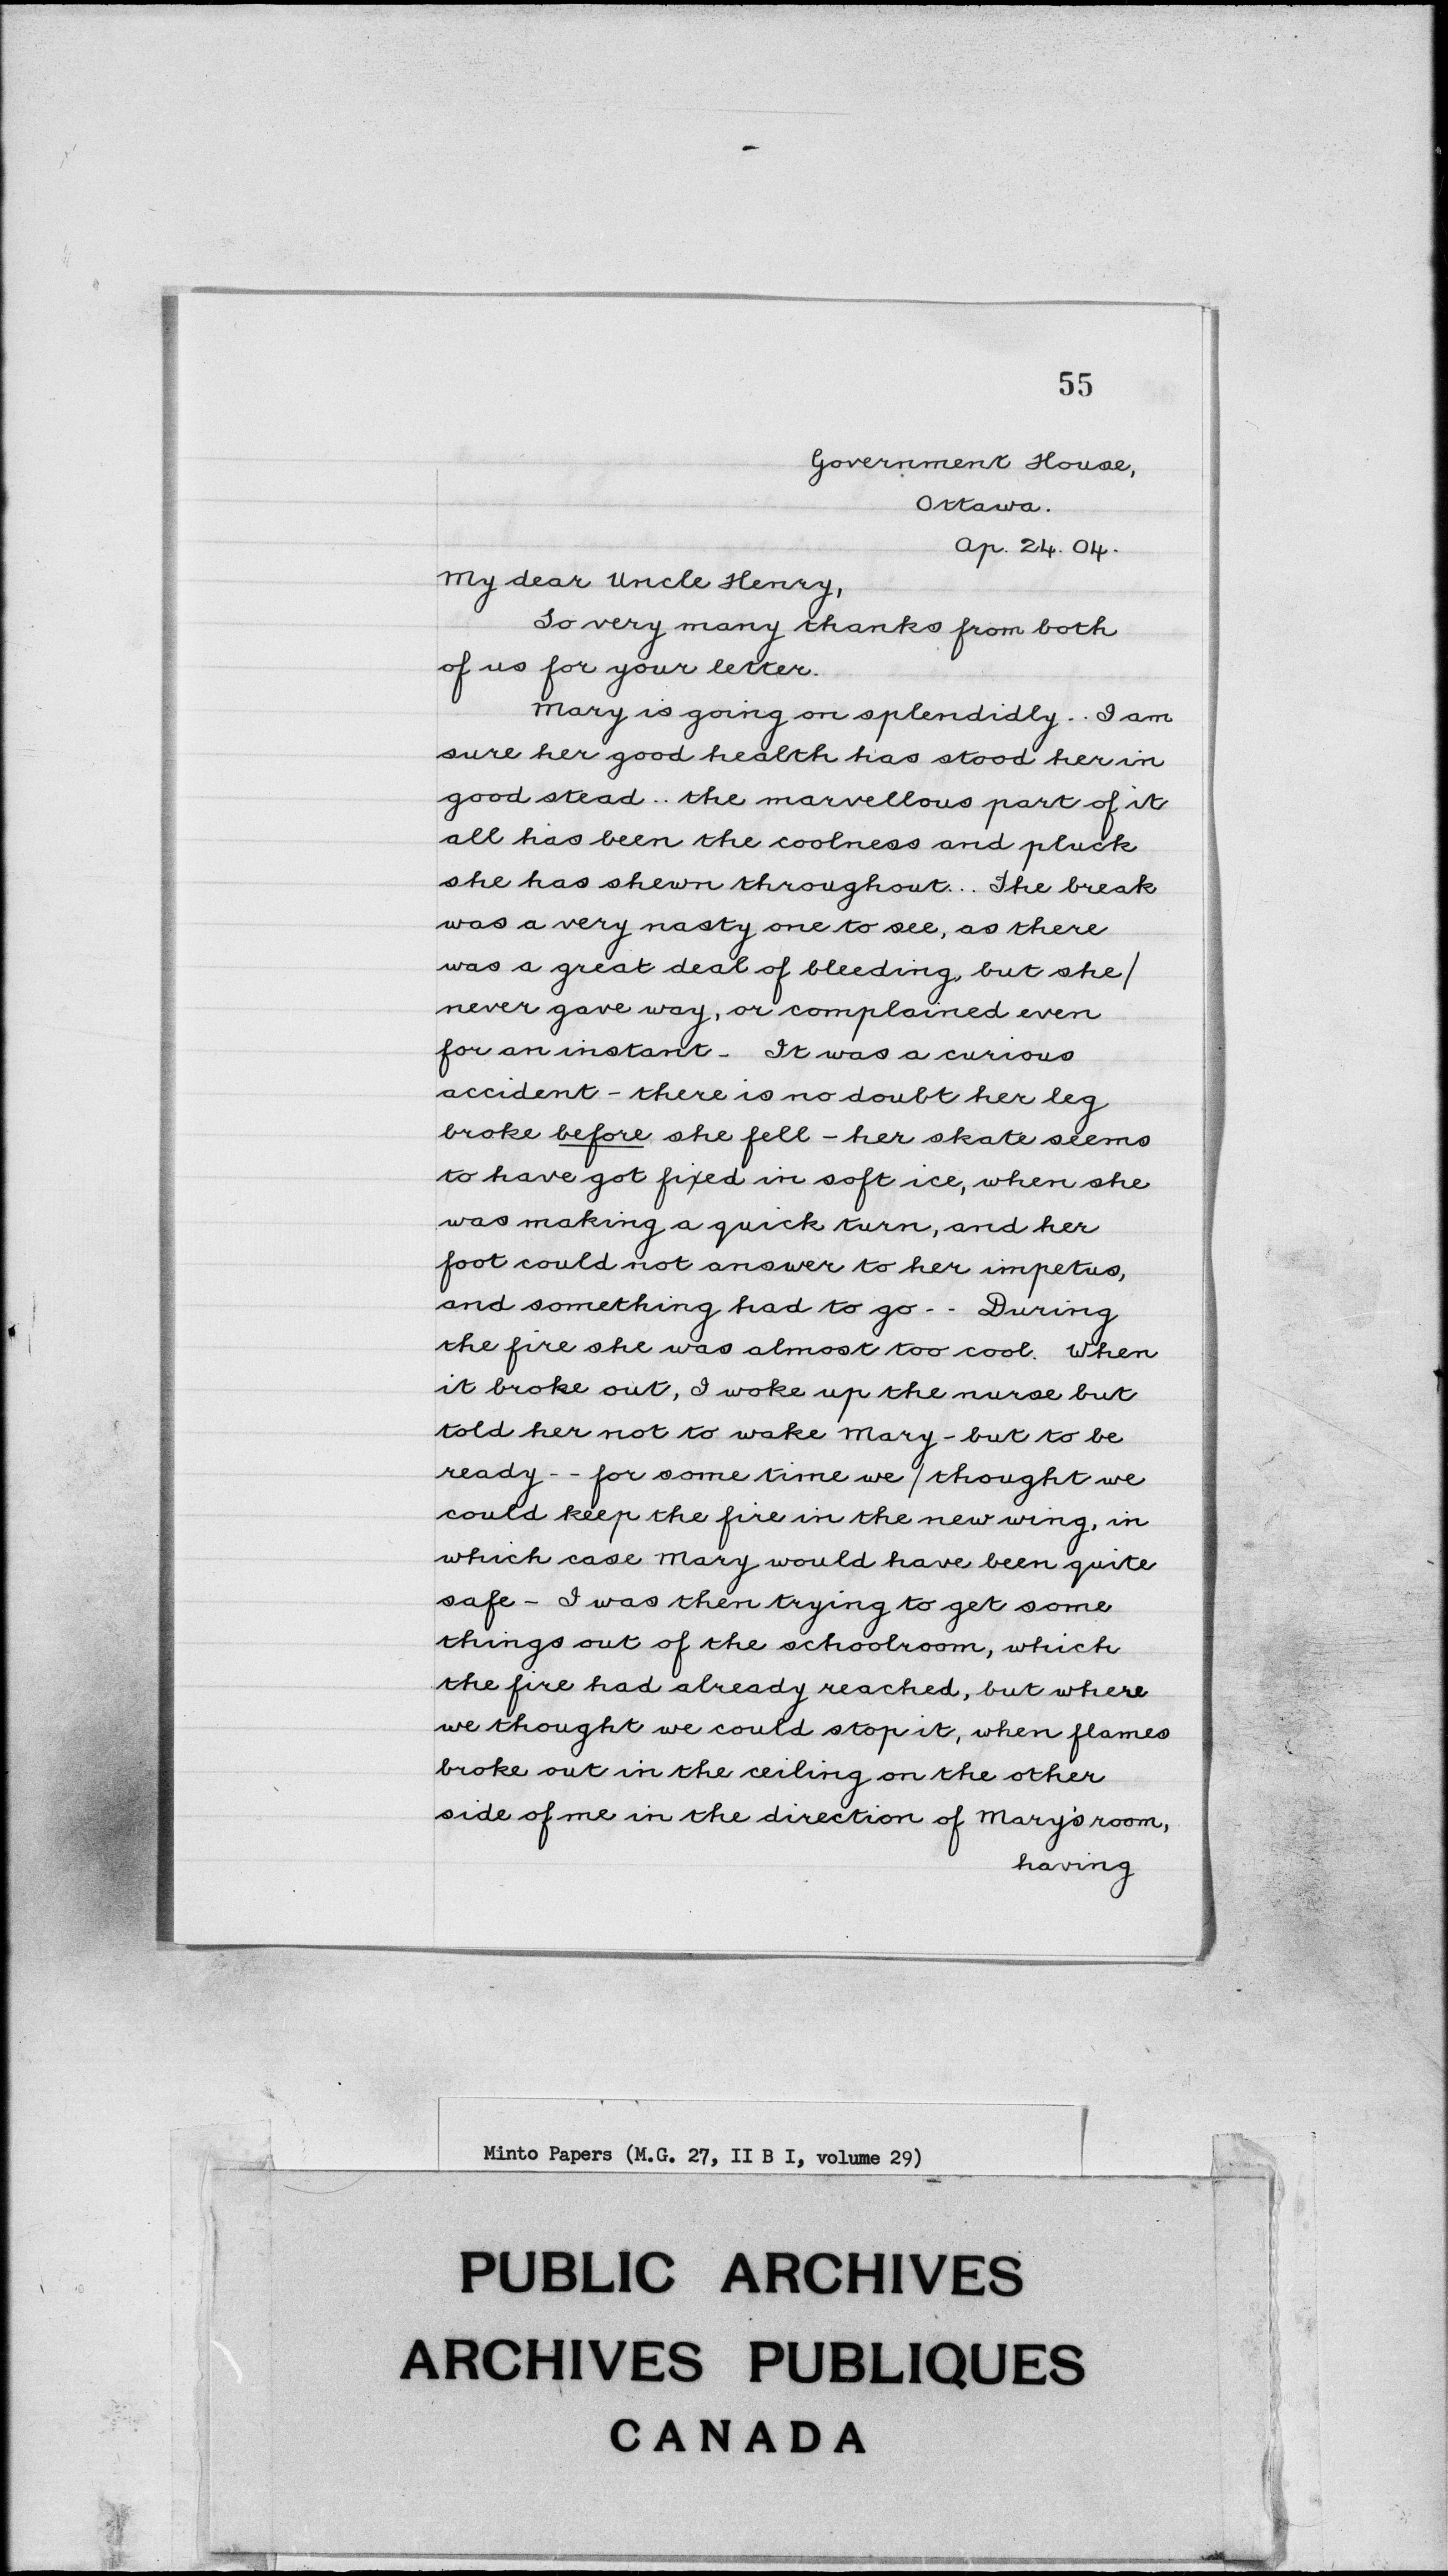 55
Government House,
Ottawa.
Ap. 24. 04.
My dear Uncle Henry,
So very many thanks from both
of us for your letter.
Mary is going on splendidly.. I am
sure her good health has stood her in
good stead.. the marvellous part of it
all has been the coolness and pluck
she has shewn throughout... The break
was a very nasty one to see, as there
was a great deal of bleeding, but she/
never gave way, or complained even
for an instant - It was a curious
accident - there is no doubt her leg
broke before she fell - her skate seems
to have got fixed in soft ice, when she
was making a quick turn, and her
foot could not answer to her impetus,
and something had to go - - During
the fire she was almost too cool. When
it broke out, I woke up the nurse but
told her not to wake Mary - but to be
ready - - for some time we / thought we
could keep the fire in the new wing, in
which case Mary would have been quite
safe - I was then trying to get some
things out of the schoolroom, which
the fire had already reached, but where
we thought we could stop it, when flames
broke out in the ceiling on the other
side of me in the direction of Mary's room,
having
Minto Papers (M.G. 27, II B I, volume 29)
PUBLIC ARCHIVES
ARCHIVES PUBLIQUES
CANADA